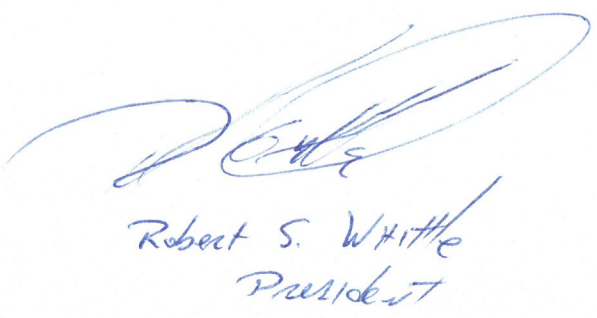 Robert S. Whittle
President